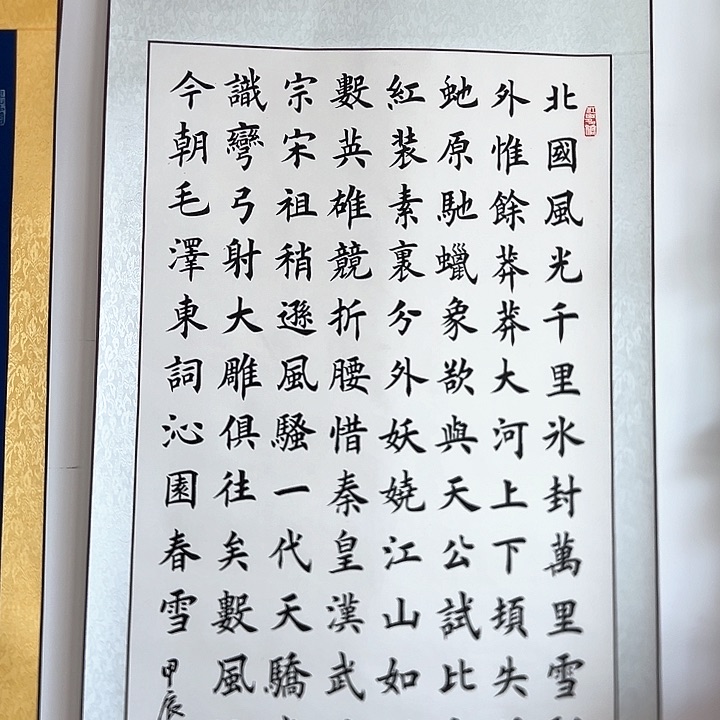 北國風光千里氷封萬里雪
外惟餘莽莽大河上下頓失
虵原馳蠟象欲與天公試比
紅装素裹分外妖嬈江山如
數英雄競折腰惜秦皇漢武
宗宋祖稍遜風騷一代天驕
識彎弓射大雕俱往矣數風
今朝毛澤東詞沁園春雪
甲辰